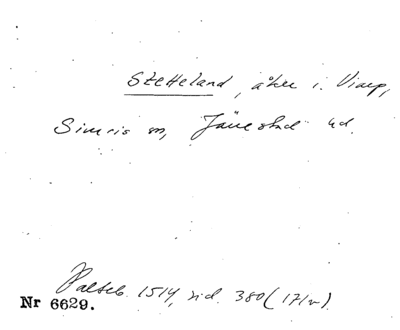 Stetteland, åker i Viarp,
Simris sn, Järrestad hd.
Paltseb. 1514, sid. 380 (171v).
Nr 6629.